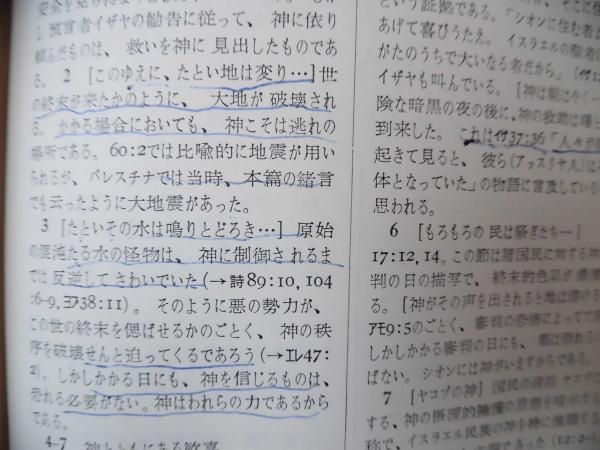 し預言者イザヤの勧告に従って、神に依り
頼んだものは、救いを神に見出したものであ
る。 2 [このゆえに、たとい地は変り…] 世
の終末が来たかのように、大地が破壊され
る。かかる場合においても、神こそは逃れの
場所である。60:2では比喩的に地震が用い
られるが、パレスチナでは当時、本篇の緒言
でも云ったように大地震があった。
3 [たといその水は鳴りとどろき…] 原始
の混沌たる水の怪物は、神に制御されるま
では反逆してさわいでいた(→詩89:10, 104
:6-9, ヨブ38:11)。そのように悪の勢力が、
この世の終末を偲ばせるかのごとく、神の秩
序を破壊せんと迫ってくるであろう(→エレ47:
2)。しかしかかる日にも、神を信じるものは、
恐れる必要がない。神はわれらの力であるから
である。
4-7 神とともにある歓喜
という証拠である。「シオンに住む者
あげて喜びうたえ。イスラエルの聖者
がたのうちで大いなる者だから」
イザヤも叫んでいる。 [神は朝はやく…
険な暗黒の夜の後に、神の救助は曙と
到来した。これは イザ37:36「人々が
起きて見ると、彼ら(アッスリヤ人)は
体となっていた」の物語に言及している
思われる。
6 [もろもろの民は騒ぎたち…]
17:12, 14。この節は諸国民に対する神
判の日の描写で、終末的色彩が濃厚
る。 [神がその声を出されると地は溶ける
アモ9:5のごとく、審判の恐怖によって
しかしかかる審判の日にも、都は恐れる
ばない。シオンには神がいますからである。
7 [ヤコブの神]
する、神の摂理的擁護の思想を暗示する
称で、イスラエル民族の神を特に強調する